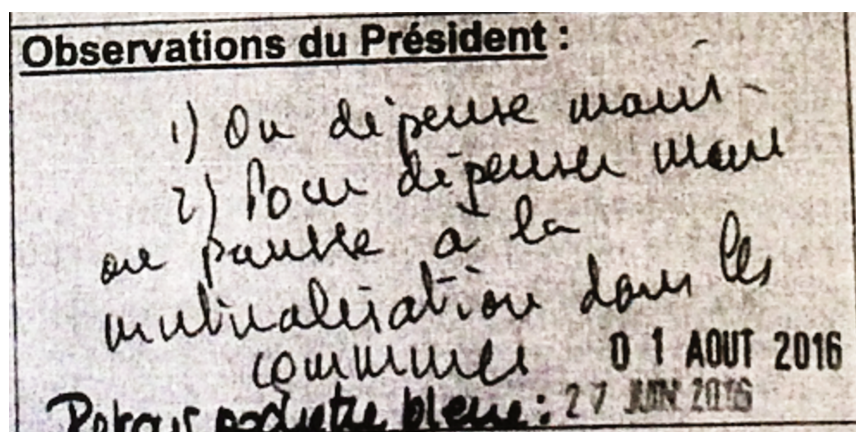 Observations du Président :
1) On dépense moins
2) Pour dépenser moins
on pousse à la
mutualisation dans les
communes
0 1 AOUT 2016
Retour pochette bleue : 27 JUIN 2016